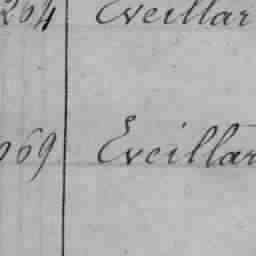 264 Eveillar
669 Eveillar